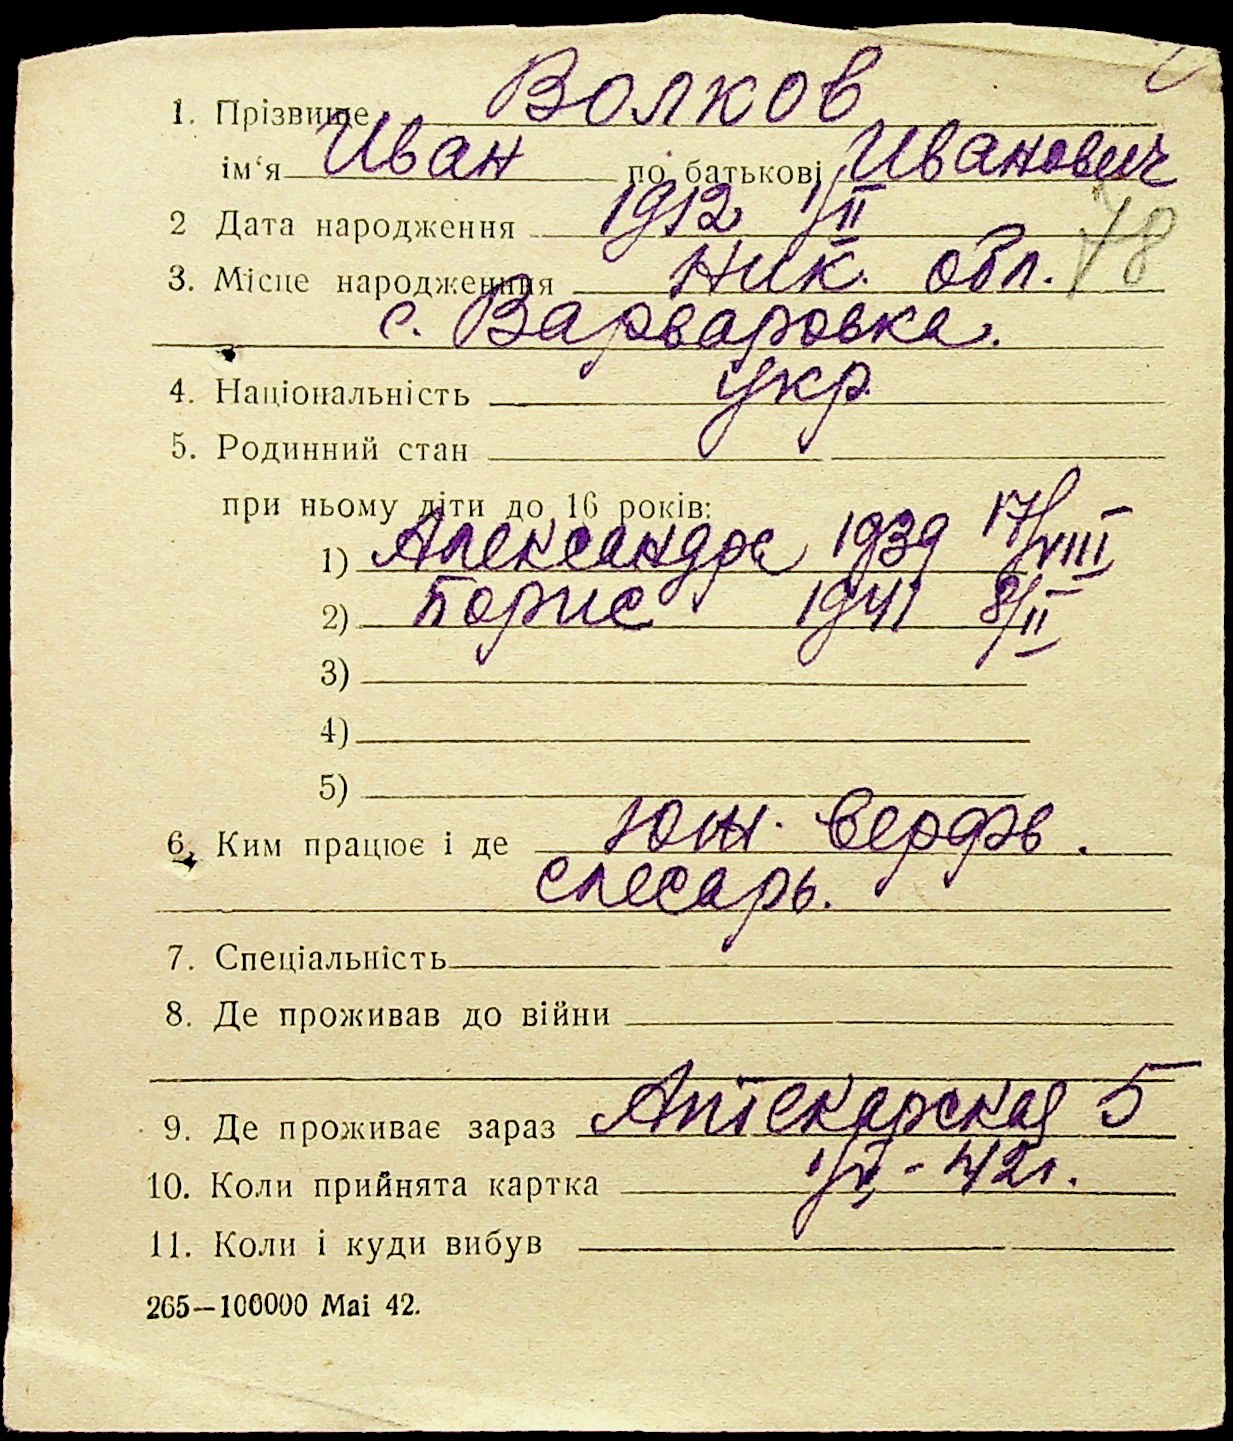 1. Прізвище Волков
ім'я Иван по батькові Иванович
2 Дата народження 1912 1/II
78
3. Місце народження Ник. обл.
с. Варваровка.
4. Національність укр
5. Родинний стан
при ньому діти до 16 років:
1) Александра 1939 17/VIII
2) Борис 1941 8/II
3)
4)
5)
6. Ким працює і де Юж. верфь.
слесарь.
7. Спеціальність
8. Де проживав до війни
9. Де проживає зараз Аптекарская 5
10. Коли прийнята картка - 42г.
11. Коли і куди вибув
265—100000 Mai 42.